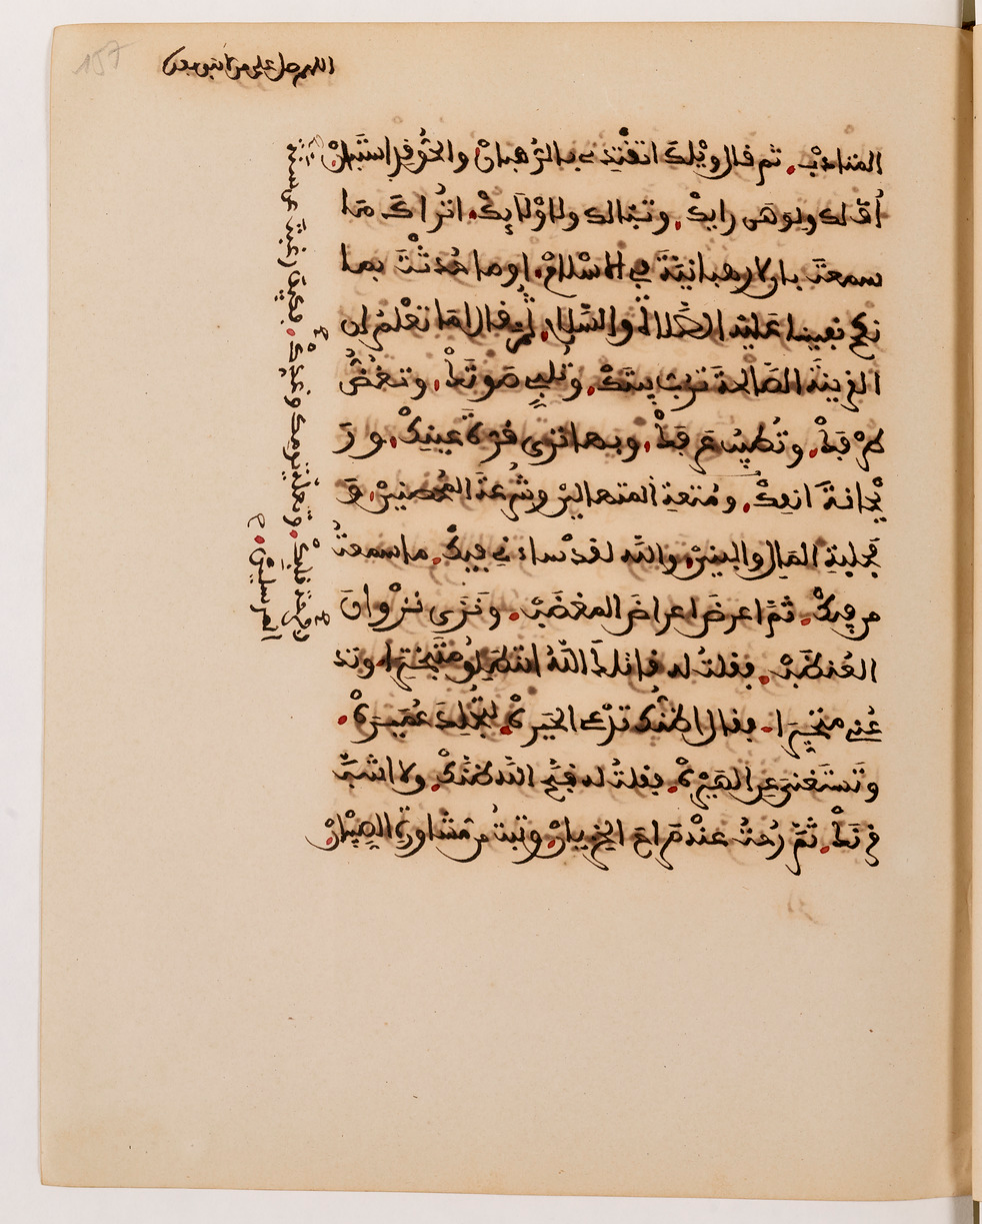 اللهم صل على من لا نبي بعده
المنادب. ثم فال ويلك اتفتدي بالرهبان والحق فد استبان
أف لك ولوهى رايك. وتبا لك ولاولايك. اتراك ما
سمعت بان لا رهبانية في الاسلام. او ما حدثت بمنا
كح نبينا عليه الصلاة والسلام. ثم فال اما تعلم ان
الفرينة الصالحة ترب بيتك. وتلبي صوتك. وتغض
طرفك. وتطيب عرفك. وبها ترى فرة عينك. ور
يحانة انفك. ومتعة المتاهلين وشرعة المحصنين. و
مجلبة المال والبنين والله لفد ساءني فيك. ما سمعت
من فيك. ثم اعرض اعراض المغضب. ونزى نزوان
العنظب. ففلت له فاتلك الله اتنطلق متبخترا. وتد
عني متحيرا. ففال اظنك تدعي الحيرة. لتجلد عميرة.
وتستغني عن المهيرة. ففلت له فبح الله ظنك. ولا اشب
فرنك. ثم رحت عنه مراح الخزيان. وتبت من مشاورة الصبيان
وفرحة فلبك. وتعلة يومك وغدك. فكيف رغبت عن سنة
المرسلين.